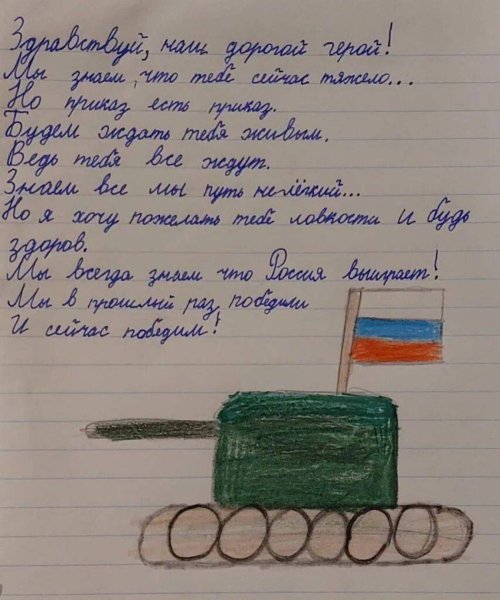 Здравствуй, наш дорогой герой!
Мы знаем, что тебе сейчас тяжело...
Но приказ есть приказ.
Будем ждать тебя живым.
Ведь тебя все ждут.
Знаем все мы путь нелёгкий...
Но я хочу пожелать тебе ловкости и будь
здоров.
Мы всегда знаем что Россия выиграет!
Мы в прошлый раз победили
И сейчас победим!